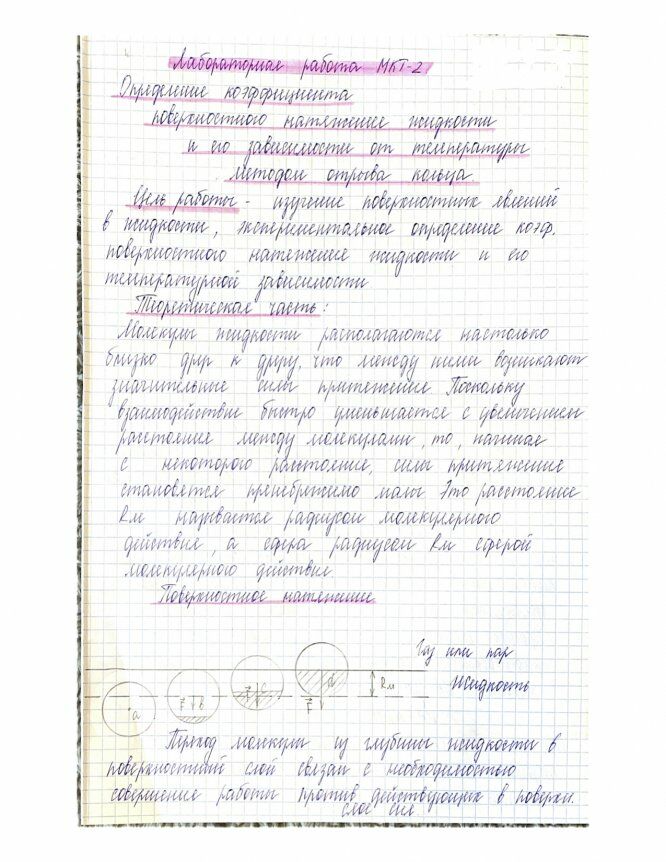 Лабораторная работа МКТ-2.
Определение коэффициента
поверхностного натяжения жидкости
и его зависимости от температуры
методом отрыва кольца
Цель работы - изучение поверхностных явлений
в жидкости, экспериментальное определение коэф.
поверхностного натяжения жидкости и его
температурной зависимости
Теоретическая часть:
Молекулы жидкости располагаются настолько
близко друг к другу, что между ними возникают
значительные силы притяжения Поскольку
взаимодействие быстро уменьшается с увеличением
расстояния между молекулами, то, начиная
с некоторого расстояния, силы притяжения
становятся пренебрежимо малы Это расстояние
Rм называется радиусом молекулярного
действия, а сфера радиусом Rм сферой
молекулярного действия.
Поверхностное натяжение
Газ или пар
Жидкость
a F b F c F d Rм
Переход молекулы из глубины жидкости в
поверхностный слой связан с необходимостью
совершения работы против действующих в поверхн.
слое сил